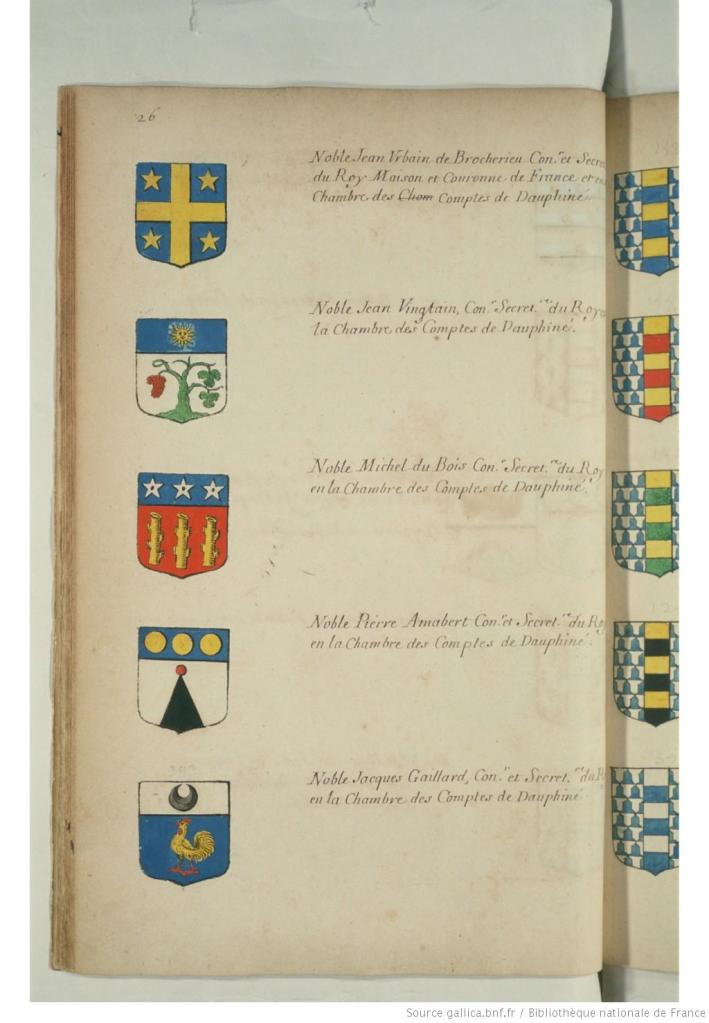 26
Noble Jean Vrbain de Brocherieu Con.er et Secre
du Roy Maison et Couronne de France et en
Chambre des Chom Comptes de Dauphiné
Noble Jean Vingtain, Con.r Secret.re du Roy
la Chambre des Comptes de Dauphiné.
Noble Michel du Bois Con.r Secret.re du Roy
en la Chambre des Comptes de Dauphiné.
Noble Pierre Amabert Con.r et Secret.re du Ro
en la Chambre des Comptes de Dauphiné.
Noble Jacques Gaillard, Con.r et Secret.re du R
en la Chambre des Comptes de Dauphiné
Source gallica.bnf.fr / Bibliothèque nationale de France